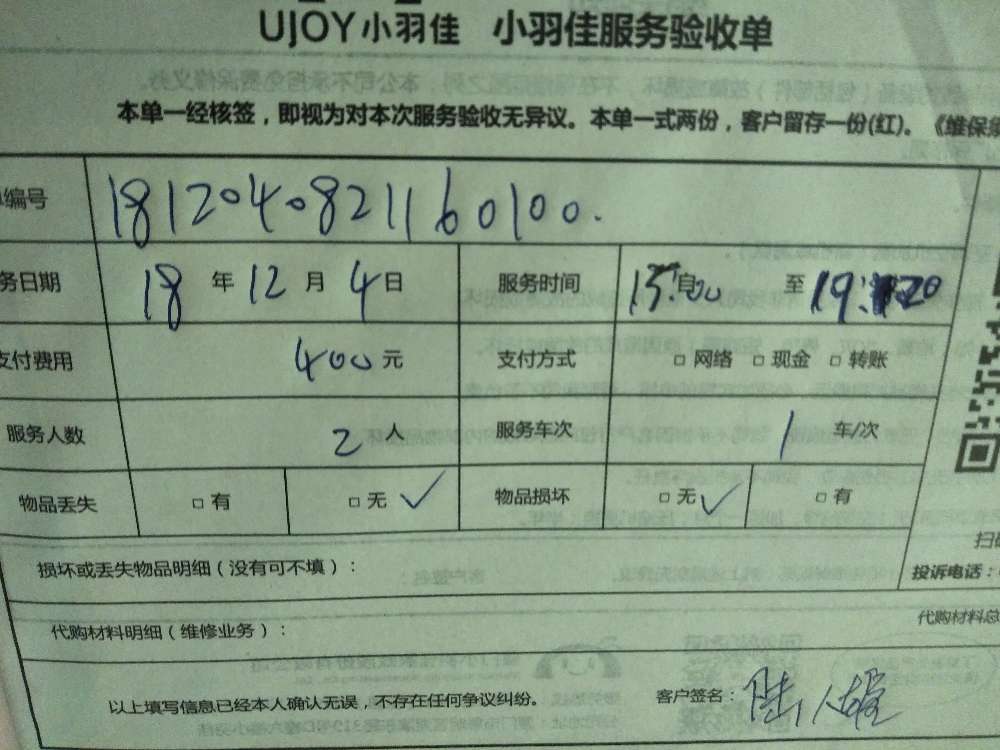 UJOY小羽佳 小羽佳服务验收单
本单一经核签，即视为对本次服务验收无异议。本单一式两份，客户留存一份(红)。《维保条
编号 1812040821160100.
务日期 18 年 12 月 4 日 服务时间 15:00 自 至 19:20
支付费用 400 元 支付方式 □ 网络 □ 现金 □ 转账
服务人数 2 人 服务车次 1 车/次
物品丢失 □ 有 □ 无 ✓ 物品损坏 □ 无 ✓ □ 有
扫码
损坏或丢失物品明细（没有可不填）： 投诉电话：
代购材料明细（维修业务）： 代购材料总
以上填写信息已经本人确认无误，不存在任何争议纠纷。 客户签名：